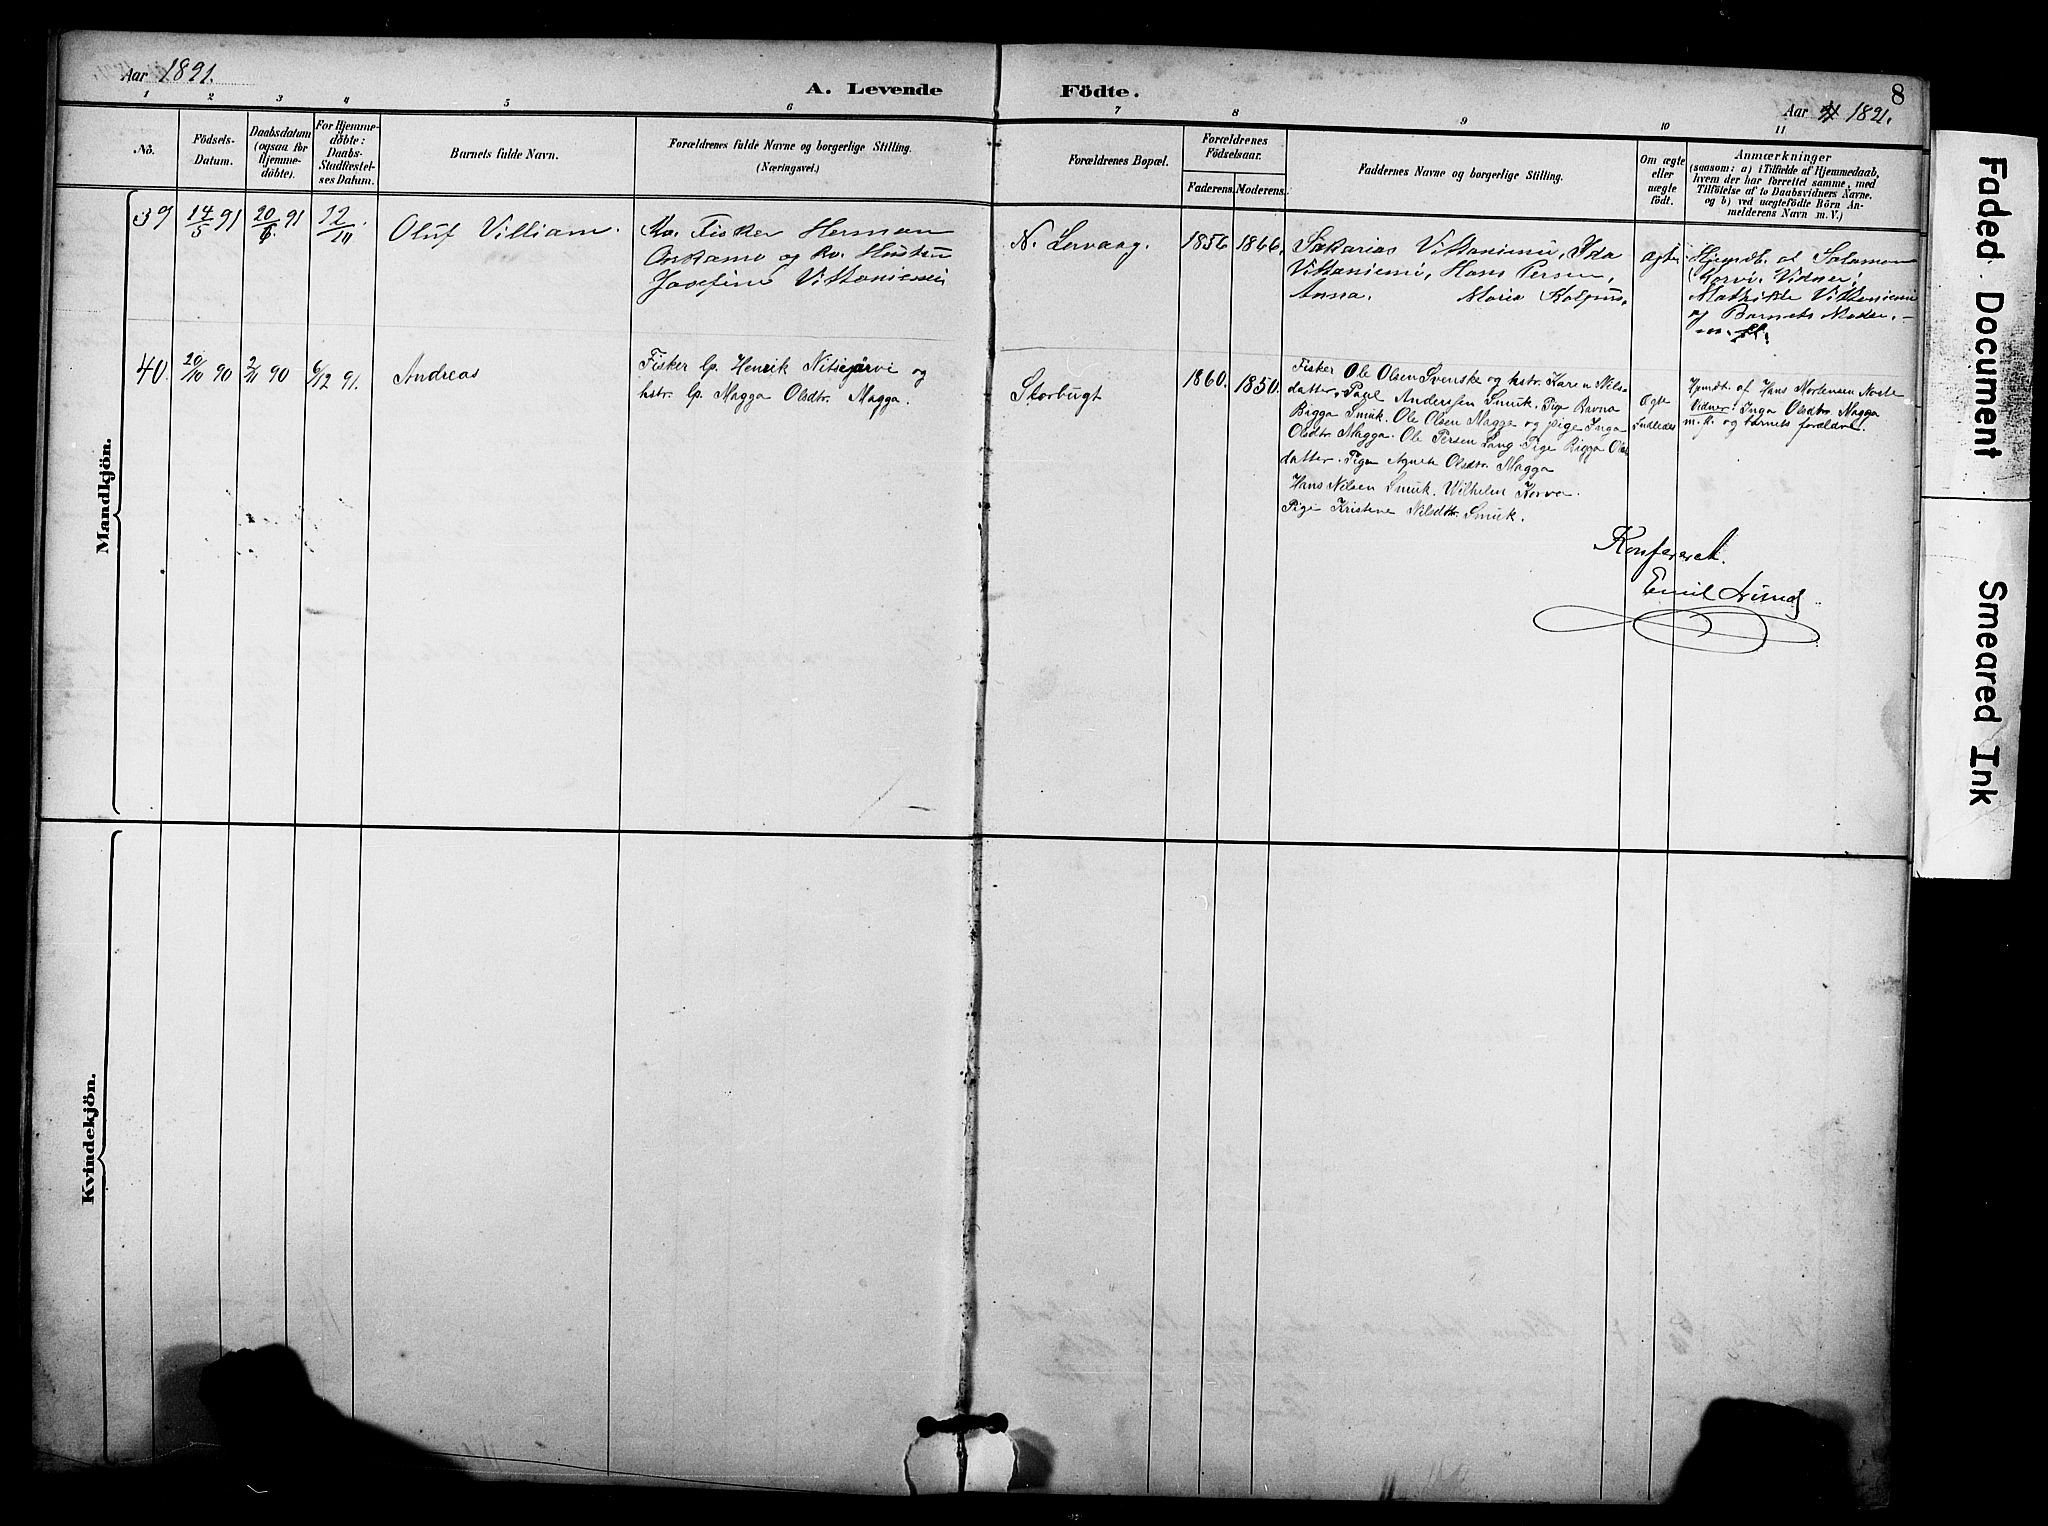 Aar 1891.
A. Levende Födte.
8
Aar 1891.
1 2 3 4 5 6 7 8 9 10 11
No.
Födsels-
Datum.
Daabsdatum
(ogsaa for
Hjemme-
döbte).
For Hjemme-
döbte:
Daabs-
Stadfæstel-
ses Datum.
Barnets fulde Navn.
Forældrenes fulde Navne og borgerlige Stilling.
(Næringsvei.)
Forældrenes Bopæl.
Forældrenes
Födselsaar.
Faderens. Moderens.
Faddernes Navne og borgerlige Stilling.
Om ægte
eller
uægte
födt.
Anmærkninger
(saasom: a) i Tilfælde af Hjemmedaab,
hvem der har forrettet samme, med
Tilföielse af to Daabsvidners Navne,
og b) ved uægtefödte Börn An-
melderens Navn m. V.)
Mandkjön.
39 14/5 91 20/6 91 12/11
Oluf Villiam.
Kv. Fisker Herman
Onkamo og kv. Hustru
Josefine Vittaniemi
N. Lervaag.
1856 1866.
Sakarias Vittaniemi, Ida
Vittaniemi, Hans Persen,
Anna. Maria Kolpus.
ægte
Hjemdt. af Salamon
Korvi. Vidner:
Mathilde Vittaniemi
og Barnets Moder.
40. 20/10 90 2/11 90 6/12 91.
Andreas
Fisker lp. Henrik Nitsejärvi og
hstr. lp. Magga Olsdtr. Magga.
Storbugt
1860. 1850.
Fisker Ole Olsen Svenske og hstr. Karen Nils-
datter. Paul Anderssen Smuk. Pige Ravna
Bigga Smuk. Ole Olsen Magga og pige Inga
Olsdtr Magga. Ole Persen Lang Pige Bigga Ols
datter. Pige Agnete Olsdtr. Magga
Hans Nilsen Smuk. Wilhelm Korva.
Pige Kristine Nilsdtr. Smuk.
Ægte
Indledet
Hjmdt. af Hans Mortensen Noste
Vidner: Inga Olsdtr. Magga
m. fl. og barnets forældre.
Konfereret.
Emil Lund
Kvindekjön.
Faded Document
Smeared Ink